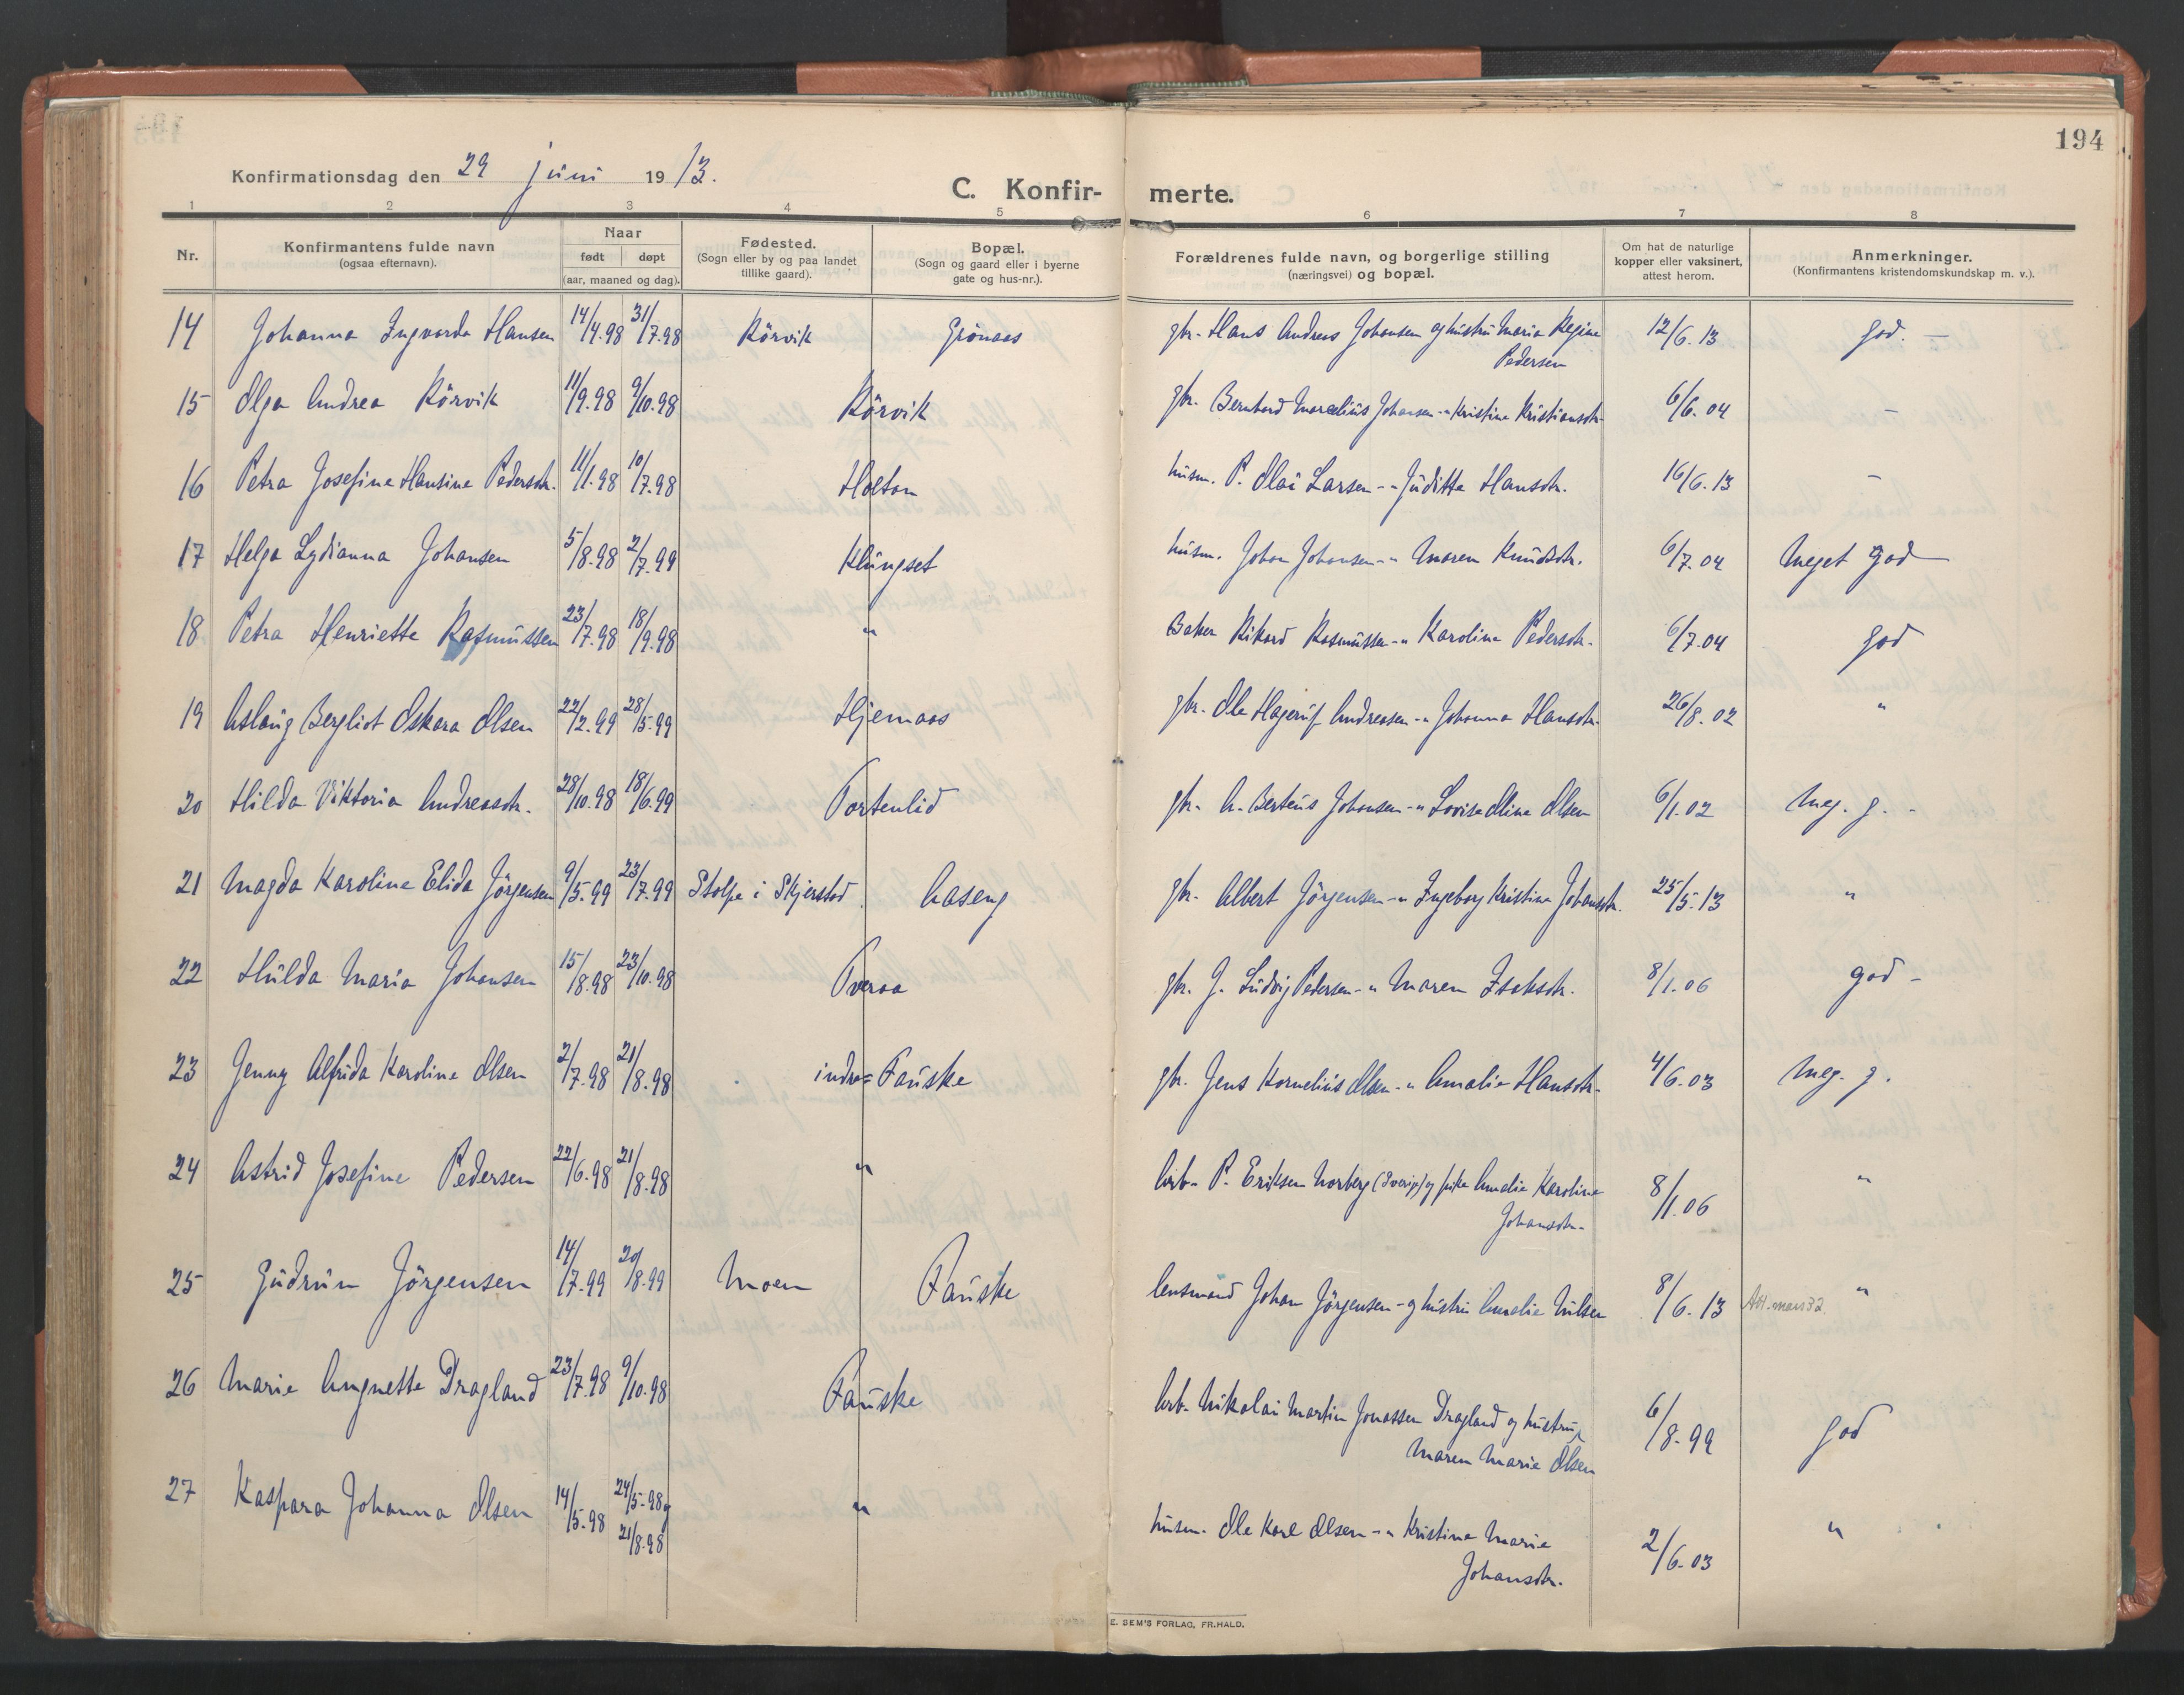 194
Konfirmationsdag den 29 juni 1913.
C. Konfir- merte.
1 2 3 4 5 6 7 8
Nr.
Konfirmantens fulde navn
(ogsaa efternavn).
Naar
født døpt
(aar, maaned og dag).
Fødested.
(Sogn eller by og paa landet
tillike gaard).
Bopæl.
(Sogn og gaard eller i byerne
gate og hus-nr.).
Forældrenes fulde navn, og borgerlige stilling
(næringsvei) og bopæl.
Om hat de naturlige
kopper eller vaksinert,
attest herom.
Anmerkninger.
(Konfirmantens kristendomskundskap m. v.).
14 Johanna Ingvarda Hansen 14/4.98 31/7.98 Rörvik Grönaas gbr. Hans Andreas Johansen og hustru Maria Regine 12/6.13 god. -
Pedersen
15 Olga Andrea Rörvik 11/9.98 9/10.98 Rörvik gbr. Bernhard Marselius Johansen -" Kristine Kristiansdtr. 6/6.04 -
16 Petra Josefine Hansine Pedersdtr. 11/1.98 10/7.98 Holtan husm. P. Olai Larsen -" Juditta Hansdtr. 16/6.13 -
17 Helga Lydianna Johansen 5/8.98 2/7.99 Klungset husm. Johan Johansen -" Maren Knudsdtr. 6/7.04 Meget god
18 Petra Henriette Rasmussen 23/7.98 18/9.98 " Baker Rikard Rasmussen -" Karoline Pedersdtr. 6/7.04 god
19 Aslaug Bergliot Oskara Olsen 22/2.99 28/5.99 Hjemaas gbr. Ole Hagerup Andreasen -" Johanna Hansdtr. 26/8.02 "
20 Hilda Viktoria Andreasdtr. 28/10.98 18/6.99 Tortenlid gbr. A. Berteus Johansen -" Lovise Oline Olsen 6/1.02 Meg. g. -
21 Magda Karoline Elida Jörgensen 9/5.99 23/7.99 Stolpe i Skjerstad Aaseng gbr. Albert Jörgensen -" Ingeborg Kristine Johansdtr. 25/5.13 "
22 Hulda Maria Johansen 15/8.98 23/10.98 Tveraa gbr. J. Ludvig Pedersen -" Maren Isaksdtr. 8/1.06 god -
23 Jenny Alfrida Karoline Olsen 2/7.98 21/8.98 indre= Fauske gbr. Jens Kornelius Olsen -" Amalie Hansdtr. 4/6.03 Meg. g.
24 Astrid Josefine Pedersen 22/6.98 21/8.98 " arb. P. Eriksen Norberg (Sverige) og pike Amalie Karoline 8/1.06 "
Johansdtr.
25 Gudrun Jörgensen 14/7.99 20/8.99 Moen Fauske lensmand Johan Jörgensen og hustru Amalie Nilsen 8/6.13 Att. mars 32. "
26 Marie Angnette Dragland 23/7.98 9/10.98 Fauske arb. Nikolai Martin Jonassen Dragland og hustru 6/8.99 god
Maren Marie Olsen
27 Kaspara Johanna Olsen 14/5.98 24/5.98 og " husm. Ole Karl Olsen -" Kristine Marie 2/6.03 "
21/8.98 Johansdtr.
E. SEM'S FORLAG, FR.HALD.